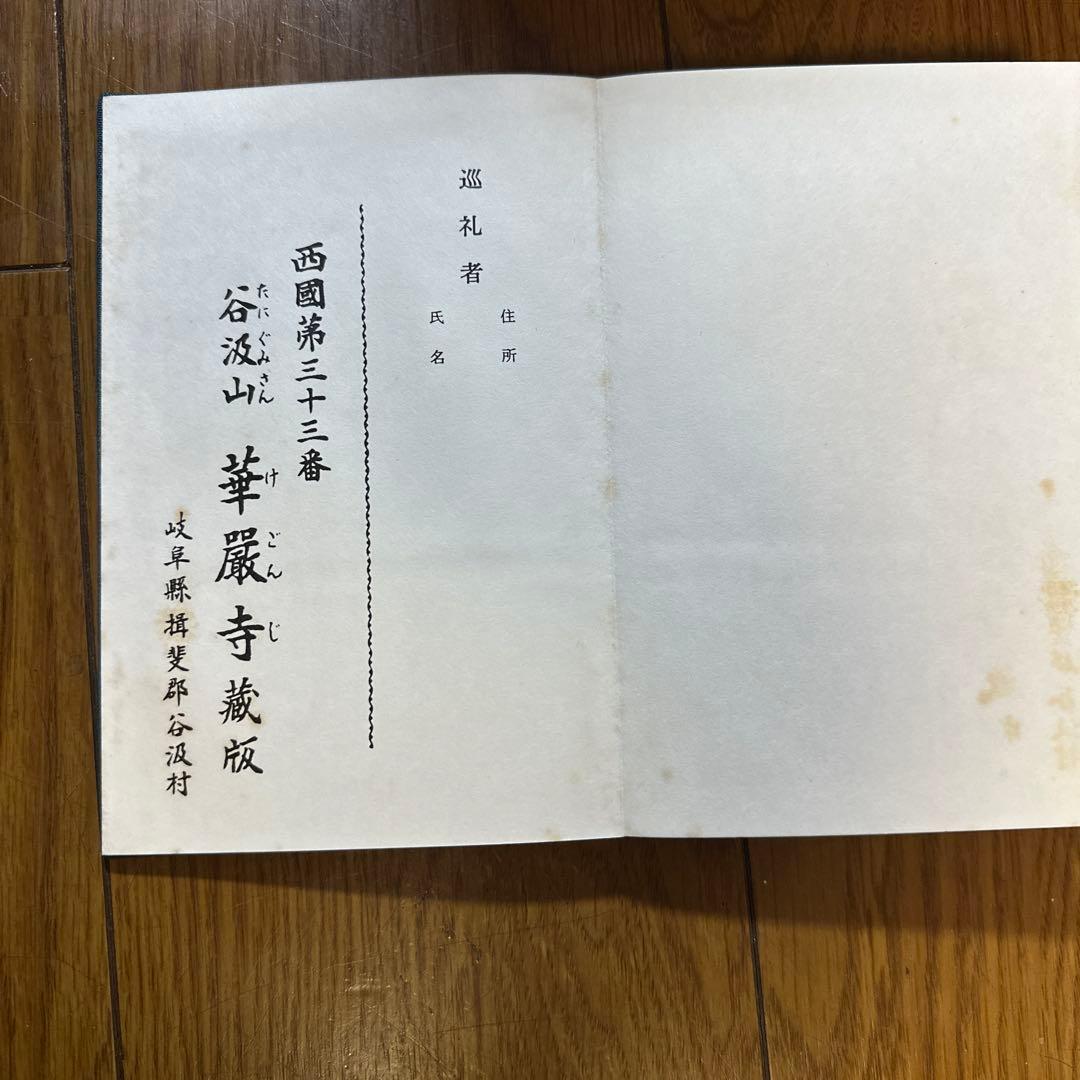 巡礼者
住所
氏名
西國第三十三番
谷汲山 華嚴寺藏版
たにぐみさん けごんじ
岐阜縣揖斐郡谷汲村